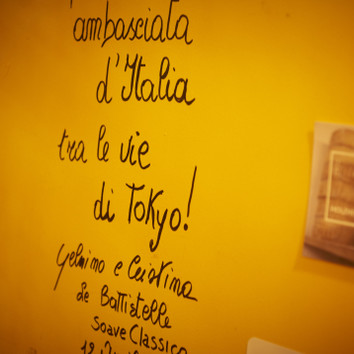 ambasciata
d'Italia
tra le vie
di Tokyo!
Gelmino e Cristina
Le Battistelle
Soave Classico
12